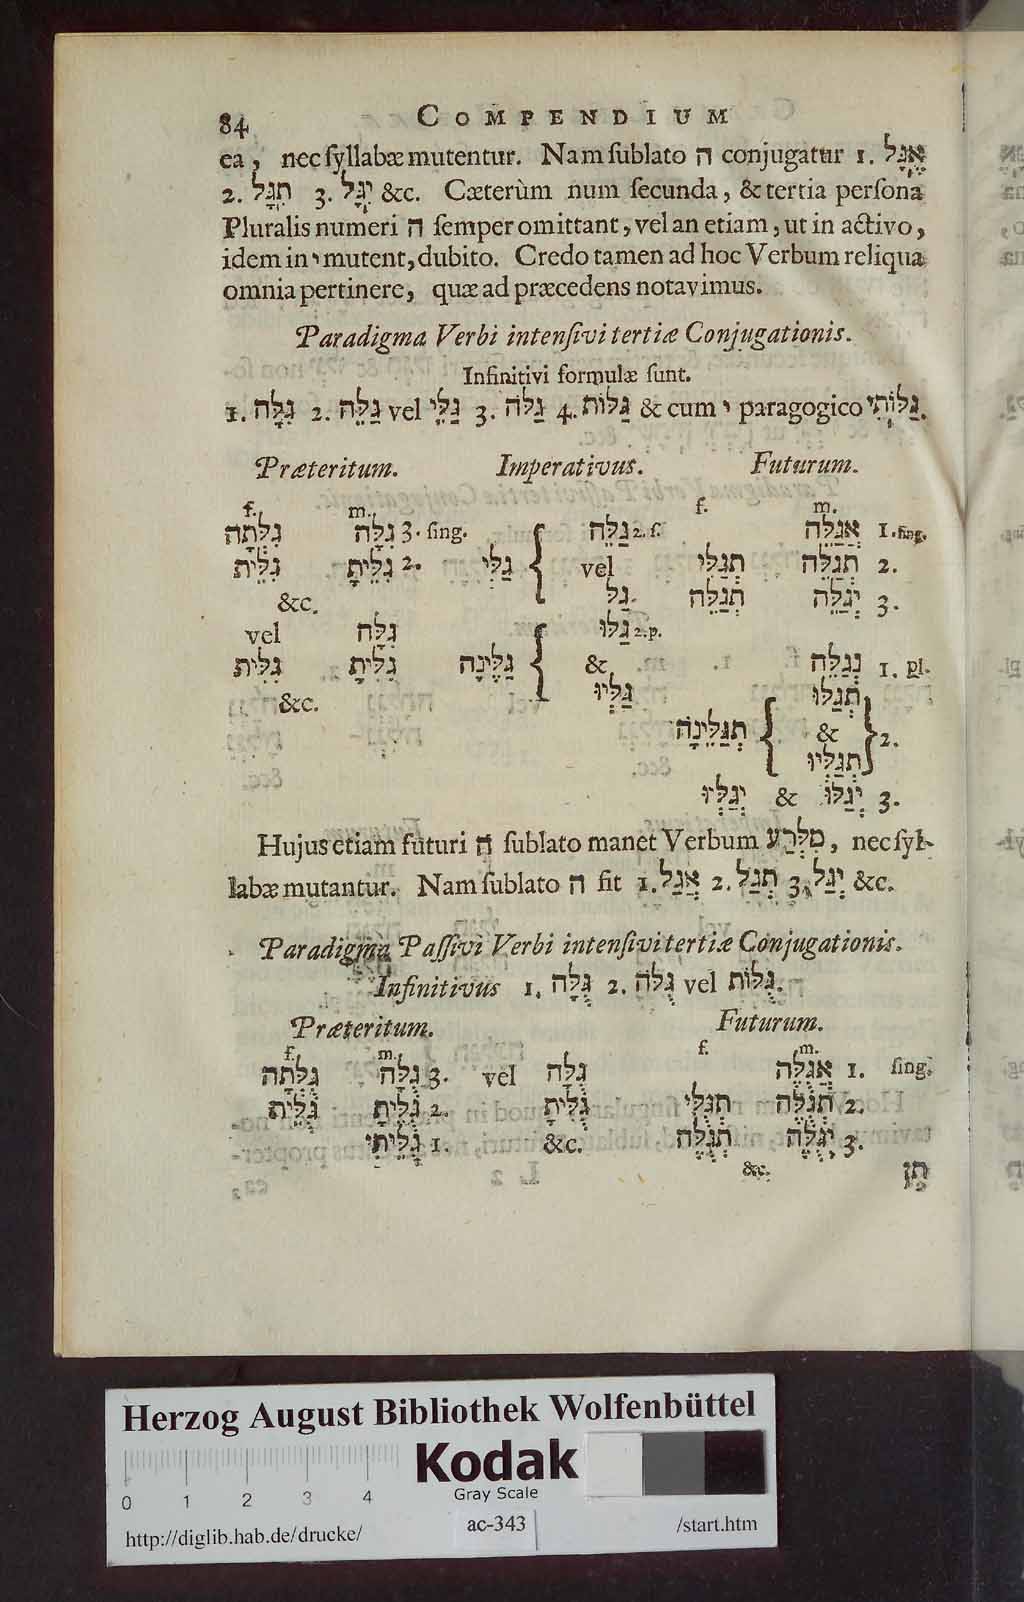 84 COMPENDIUM
ea, nec ſyllabæ mutentur. Nam ſublato ה conjugatur 1. אֶגָּל
2. תִּגָּל 3. יִגָּל &c. Cæterùm num ſecunda, & tertia perſona
Pluralis numeri ה ſemper omittant, vel an etiam, ut in activo,
idem in י mutent, dubito. Credo tamen ad hoc Verbum reliqua
omnia pertinere, quæ ad præcedens notavimus.
Paradigma Verbi intenſivi tertiæ Conjugationis.
Infinitivi formulæ ſunt.
1. גִּלָּה 2. גַּלֵּה vel גַּלֵּי 3. גַּלֹּה 4. גַּלּוֹת & cum י paragogico גַּלּוֹתִי.
Præteritum. Imperativus. Futurum.
f. m. f. m.
גִּלְּתָה גִּלָּה 3. ſing. גַּלֵּה 2. ſ. אֲגַלֵּה 1. ſing.
גִּלֵּית גִּלֵּיתָ 2. גַּלִּי vel תְּגַלִּי תְּגַלֵּה 2.
&c. גַּל תְּגַלֵּה יְגַלֵּה 3.
vel גִּלָּה גַּלּוּ 2. p.
גִּלִּית גִּלִּיתָ גַּלֶּינָה & נְגַלֵּה 1. pl.
&c. גַּלְּיוּ תְּגַלּוּ
תְּגַלֵּינָה & 2.
תְּגַלְּיוּ
יְגַלְּיוּ & יְגַלּוּ 3.
Hujus etiam futuri ה ſublato manet Verbum מִלְּרַע, nec ſyl-
labæ mutantur. Nam ſublato ה fit 1. אֲגַל 2. תְּגַל 3. יְגַל &c.
Paradigma Paſſivi Verbi intenſivi tertiæ Conjugationis.
Infinitivus 1. גֻּלָּה 2. גֻּלֹּה vel גֻּלּוֹת.
Præteritum. Futurum.
f. m. f. m.
גֻּלְּתָה גֻּלָּה 3. vel גֻּלָּה אֲגֻלֶּה 1. ſing.
גֻּלֵּית גֻּלֵּיתָ 2. גֻּלִּיתָ תְּגֻלִּי תְּגֻלֶּה 2.
גֻּלֵּיתִי 1. &c. תְּגֻלֶּה יְגֻלֶּה 3.
&c.
Herzog August Bibliothek Wolfenbüttel
Kodak
Gray Scale
0 1 2 3 4
http://diglib.hab.de/drucke/ ac-343 /start.htm